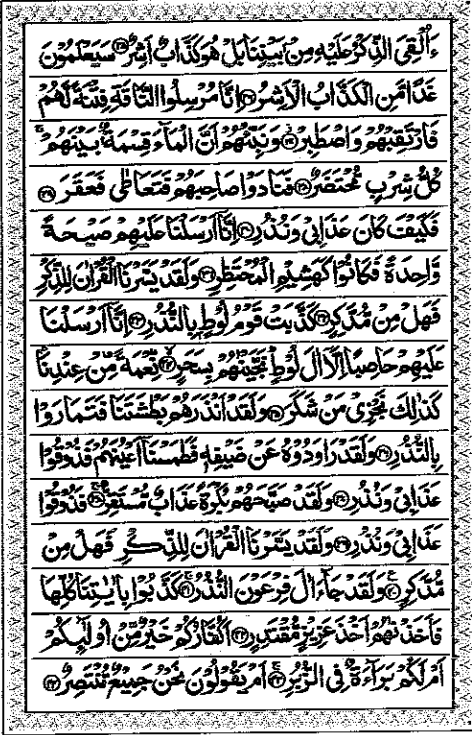 ءَاُلْقِیَ الذِّكْرُ عَلَیْهِ مِنْۢ بَیْنِنَا بَلْ هُوَ كَذَّابٌ اَشِرٌ ﴿۲۵﴾ سَیَعْلَمُوْنَ
غَدًا مَّنِ الْكَذَّابُ الْاَشِرُ ﴿۲۶﴾ اِنَّا مُرْسِلُوا النَّاقَةِ فِتْنَةً لَّهُمْ
فَارْتَقِبْهُمْ وَاصْطَبِرْ ﴿۲۷﴾ وَنَبِّئْهُمْ اَنَّ الْمَآءَ قِسْمَةٌۢ بَیْنَهُمْ ۚ
كُلُّ شِرْبٍ مُّحْتَضَرٌ ﴿۲۸﴾ فَنَادَوْا صَاحِبَهُمْ فَتَعَاطٰی فَعَقَرَ ﴿۲۹﴾
فَكَیْفَ كَانَ عَذَابِیْ وَنُذُرِ ﴿۳۰﴾ اِنَّاۤ اَرْسَلْنَا عَلَیْهِمْ صَیْحَةً
وَّاحِدَةً فَكَانُوْا كَهَشِیْمِ الْمُحْتَظِرِ ﴿۳۱﴾ وَلَقَدْ یَسَّرْنَا الْقُرْاٰنَ لِلذِّكْرِ
فَهَلْ مِنْ مُّدَّكِرٍ ﴿۳۲﴾ كَذَّبَتْ قَوْمُ لُوْطٍۭ بِالنُّذُرِ ﴿۳۳﴾ اِنَّاۤ اَرْسَلْنَا
عَلَیْهِمْ حَاصِبًا اِلَّاۤ اٰلَ لُوْطٍ ؕ نَجَّیْنٰهُمْ بِسَحَرٍ ﴿۳۴﴾ نِّعْمَةً مِّنْ عِنْدِنَا ؕ
كَذٰلِكَ نَجْزِیْ مَنْ شَكَرَ ﴿۳۵﴾ وَلَقَدْ اَنْذَرَهُمْ بَطْشَتَنَا فَتَمَارَوْا
بِالنُّذُرِ ﴿۳۶﴾ وَلَقَدْ رَاوَدُوْهُ عَنْ ضَیْفِهٖ فَطَمَسْنَاۤ اَعْیُنَهُمْ فَذُوْقُوْا
عَذَابِیْ وَنُذُرِ ﴿۳۷﴾ وَلَقَدْ صَبَّحَهُمْ بُكْرَةً عَذَابٌ مُّسْتَقِرٌّ ﴿۳۸﴾ فَذُوْقُوْا
عَذَابِیْ وَنُذُرِ ﴿۳۹﴾ وَلَقَدْ یَسَّرْنَا الْقُرْاٰنَ لِلذِّكْرِ فَهَلْ مِنْ
مُّدَّكِرٍ ﴿۴۰﴾ وَلَقَدْ جَآءَ اٰلَ فِرْعَوْنَ النُّذُرُ ﴿۴۱﴾ كَذَّبُوْا بِاٰیٰتِنَا كُلِّهَا
فَاَخَذْنٰهُمْ اَخْذَ عَزِیْزٍ مُّقْتَدِرٍ ﴿۴۲﴾ اَكُفَّارُكُمْ خَیْرٌ مِّنْ اُولٰٓىِٕكُمْ
اَمْ لَكُمْ بَرَآءَةٌ فِی الزُّبُرِ ﴿۴۳﴾ اَمْ یَقُوْلُوْنَ نَحْنُ جَمِیْعٌ مُّنْتَصِرٌ ﴿۴۴﴾